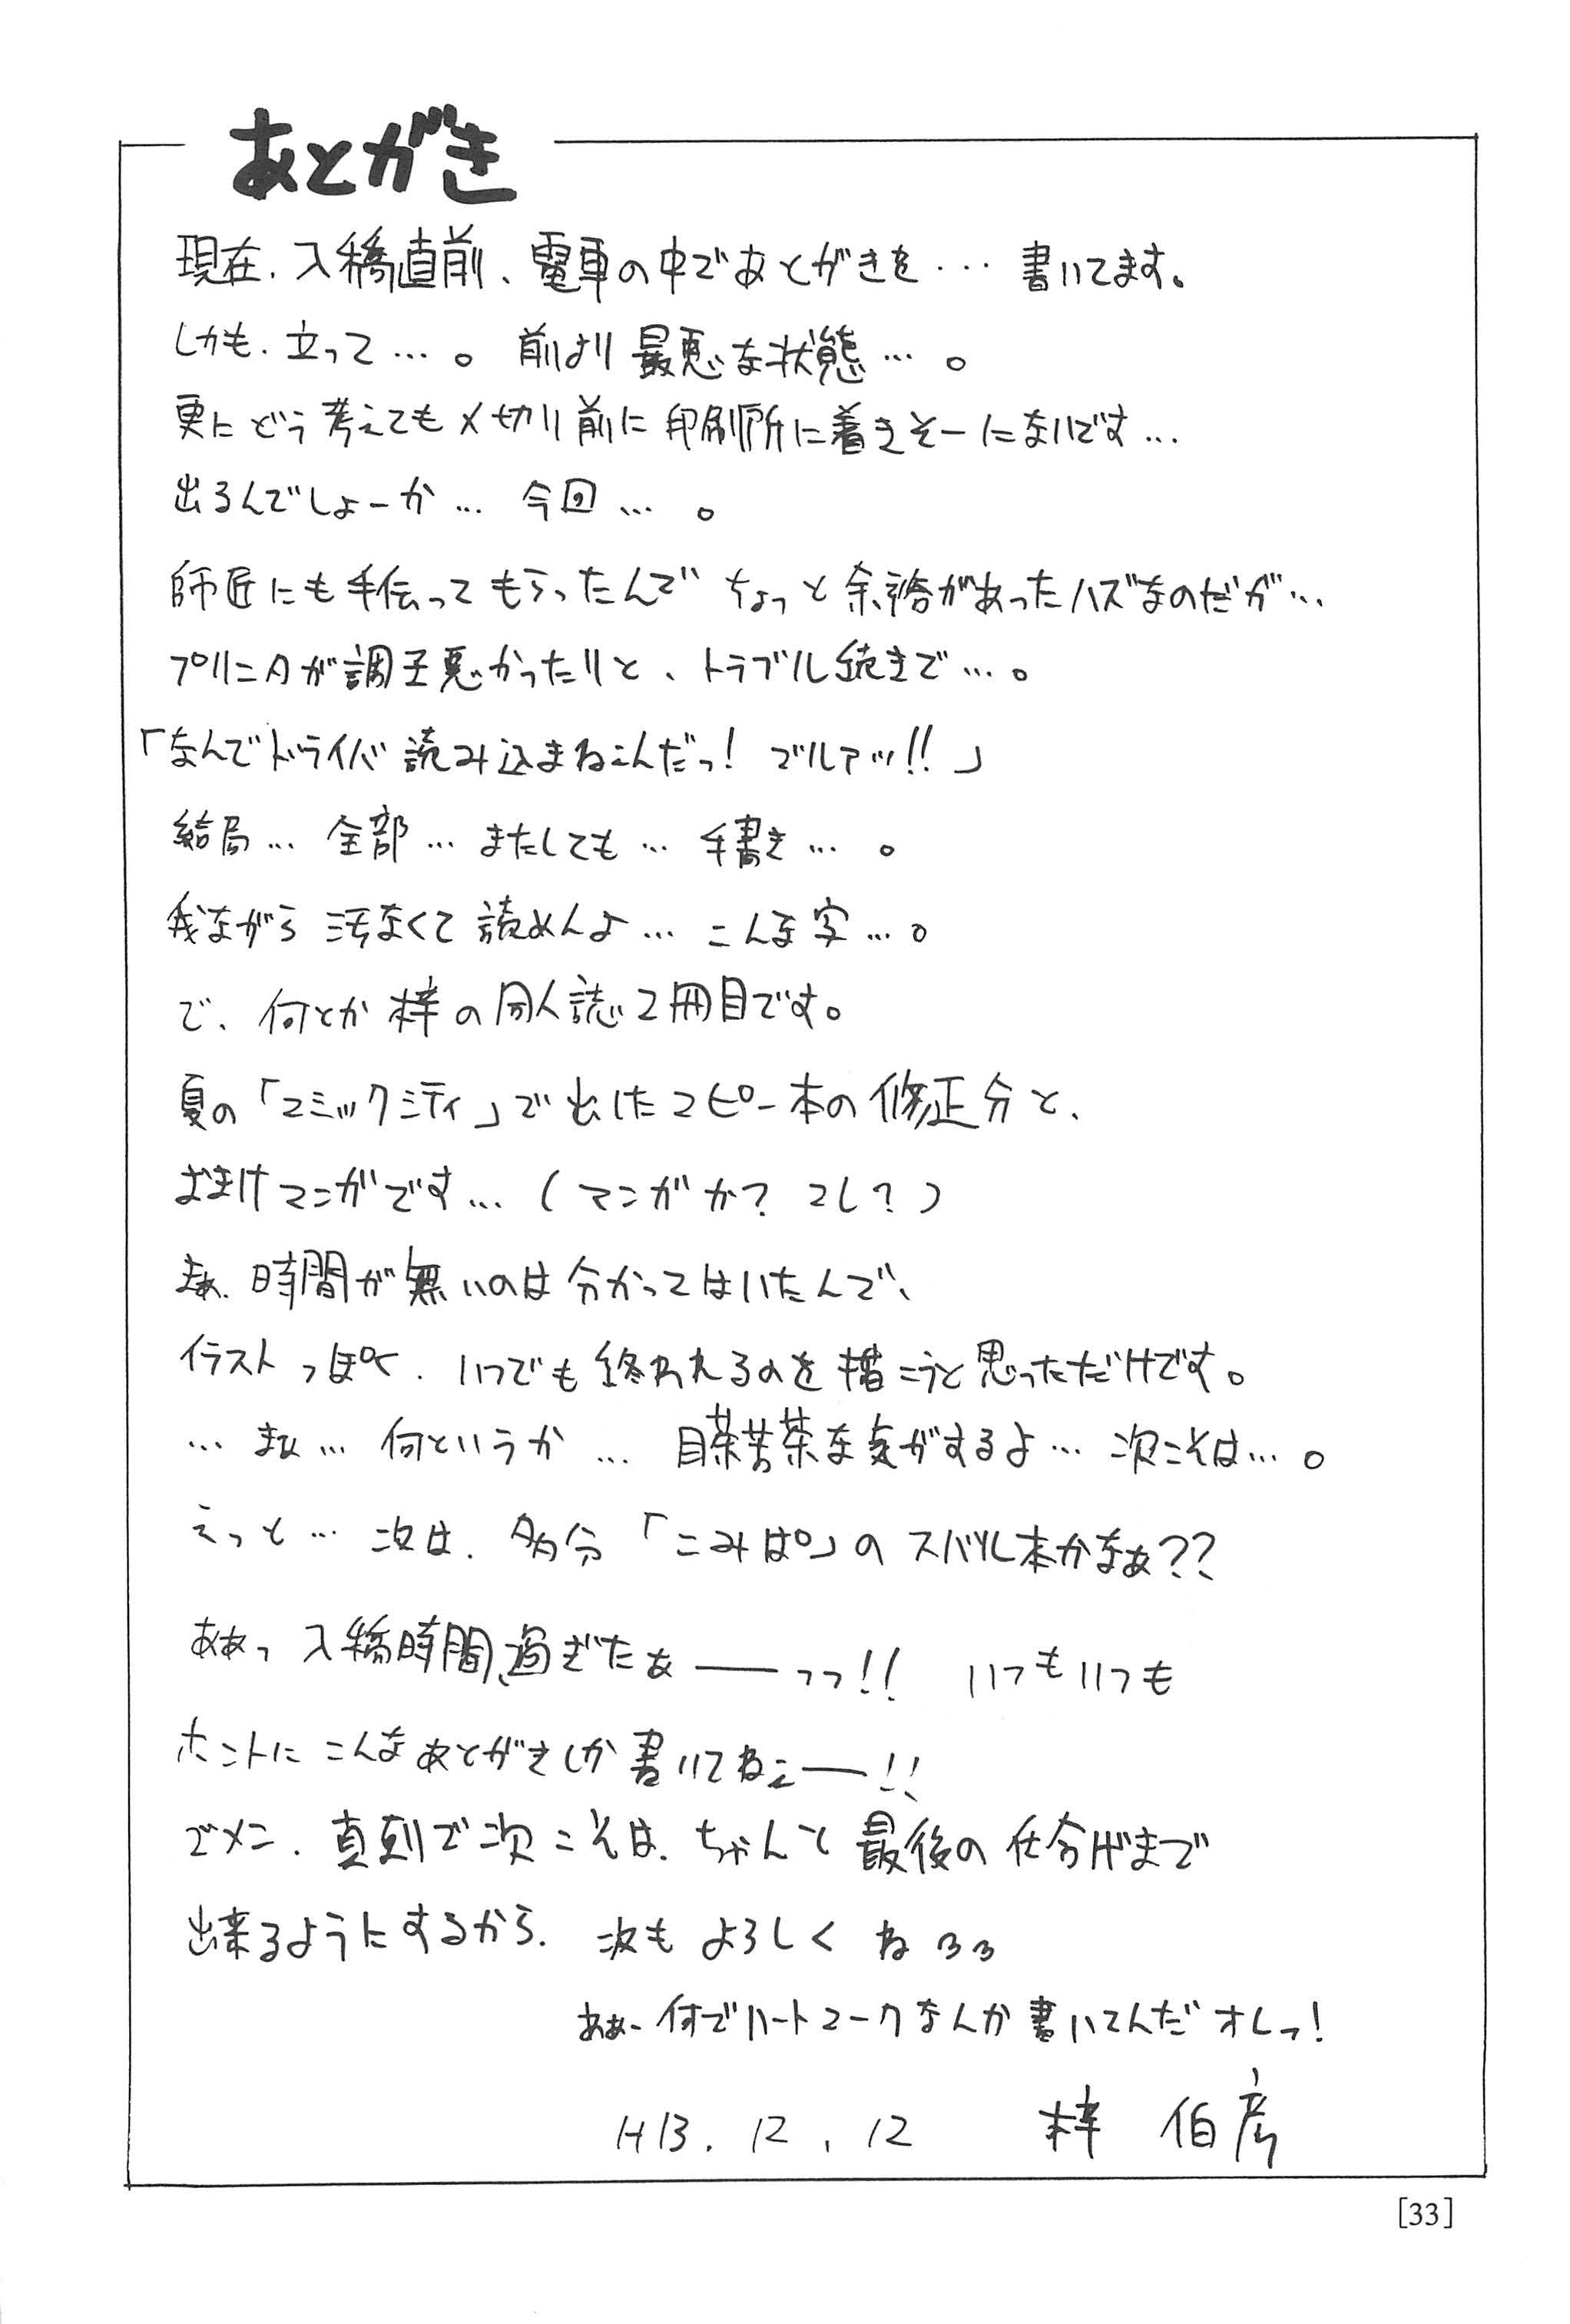 あとがき
現在、入稿直前、電車の中であとがきを… 書いてます。
しかも、立って…。 前より最悪な状態…。
更にどう考えても〆切り前に印刷所に着きそーにないです…
出るんでしょーか… 今回…。
師匠にも手伝ってもらったんで ちょっと余裕があったハズなのだが…
プリンタが調子悪かったりと、トラブル続きで…。
「なんでドライバ読み込まねェんだっ! ゴルァッ!!」
結局… 全部… またしても… 手書き…。
我ながら 汚なくて 読めんよ… こんな字…。
で、何とか梓の同人誌2冊目です。
夏の「コミックシティ」で出したコピー本の修正分と、
おまけマンガです…(マンガか? コレ?)
まぁ、時間が無いのは分かってはいたんで、
イラストっぽく、いつでも終われるのを描こうと思っただけです。
… まぁ… 何というか… 目茶苦茶な気がするよ… 次こそは…。
えっと… 次は、多分「こみぱ」のスバル本かなぁ??
ああっ 入稿時間過ぎたぁ――っっ!! いつもいつも
ホントに こんなあとがきしか書いてねェ――!!
ゴメン、真剣で次こそは、ちゃんと最後の仕上げまで
出来るようにするから、次も よろしく ね
ああ~何でハートマークなんか書いてんだオレっ!
H13.12.12 梓 伯彦
[33]